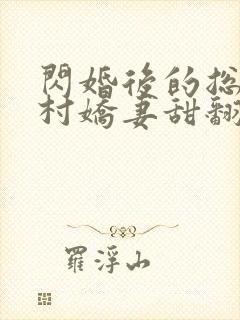 閃婚後的总
村嬌妻甜翻
羅浮山